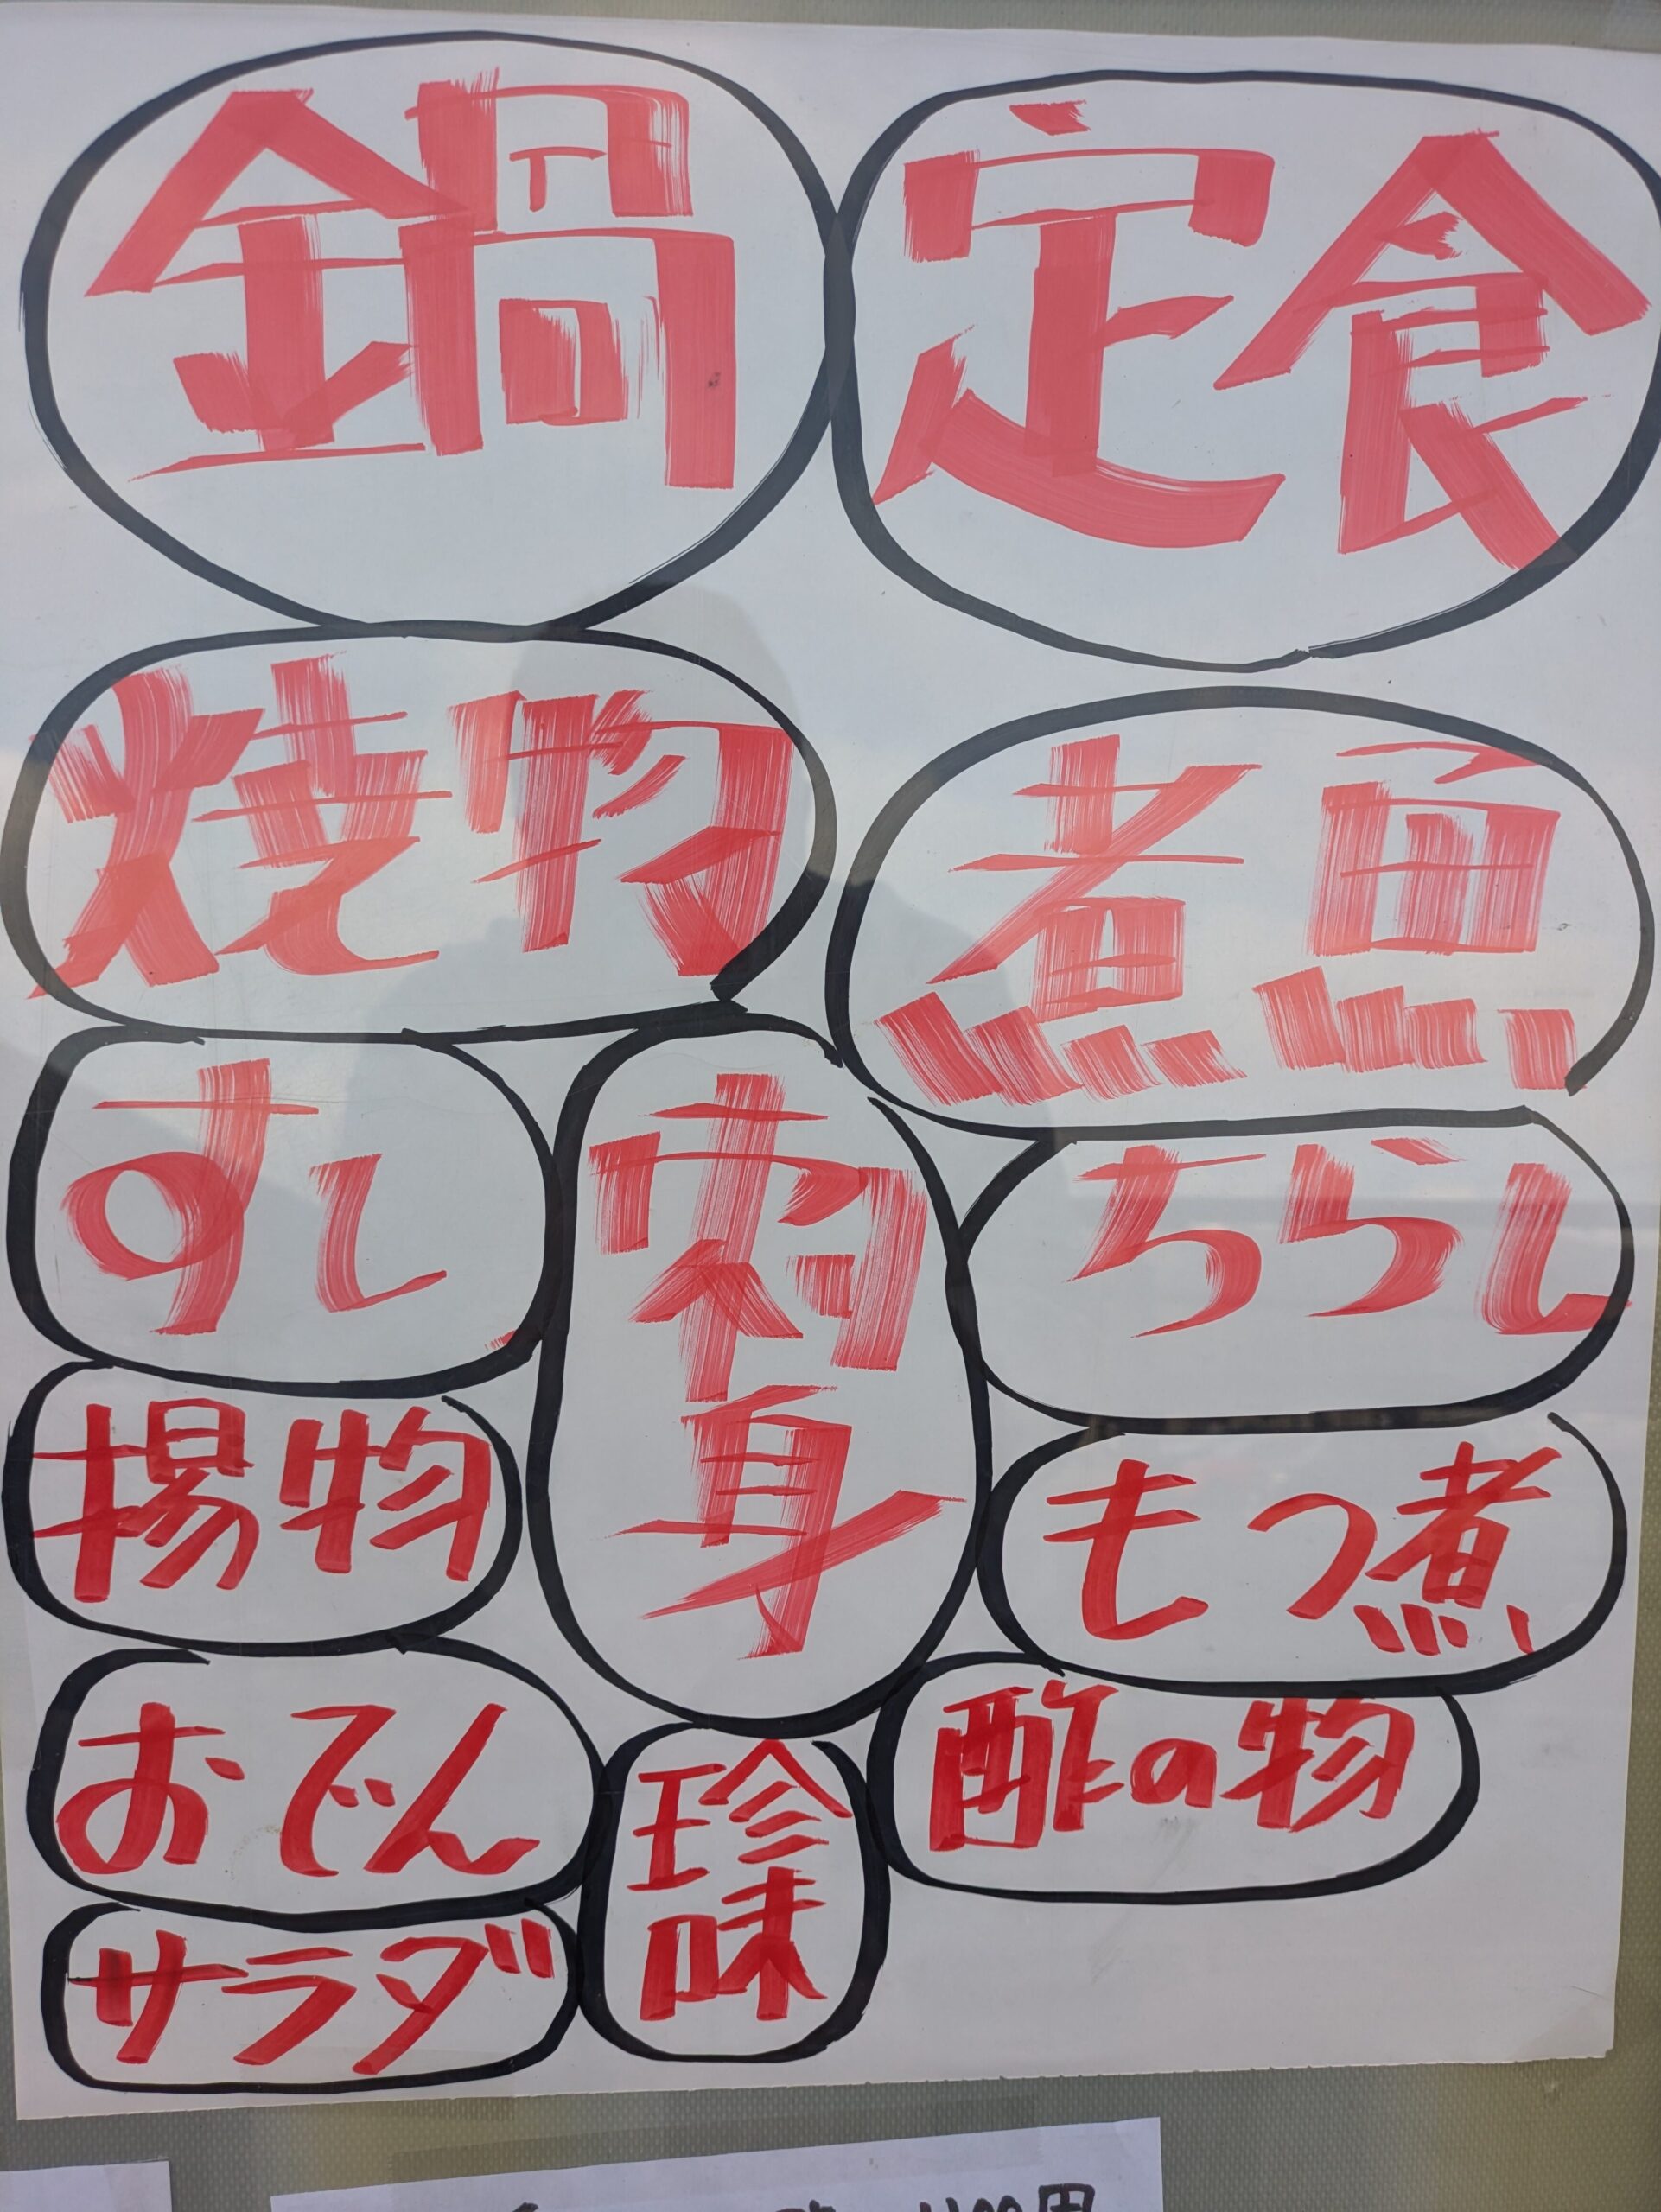 鍋
定食
焼物
煮魚
すし
刺身
ちらし
揚物
もつ煮
おでん
珍味
酢の物
サラダ
円